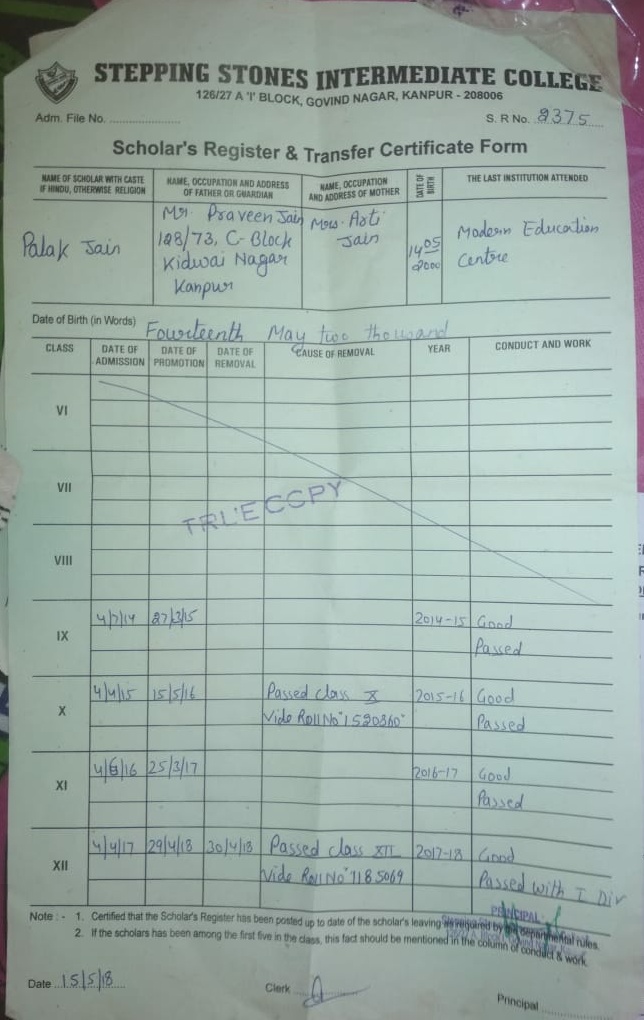 STEPPING STONES INTERMEDIATE COLLEGE
126/27 A 'I' BLOCK, GOVIND NAGAR, KANPUR - 208006
Adm. File No. .................... S. R No. 2375
Scholar's Register & Transfer Certificate Form
NAME OF SCHOLAR WITH CASTE IF HINDU, OTHERWISE RELIGION
NAME, OCCUPATION AND ADDRESS OF FATHER OR GUARDIAN
NAME, OCCUPATION AND ADDRESS OF MOTHER
DATE OF BIRTH
THE LAST INSTITUTION ATTENDED
Palak Jain
Mr. Praveen Jain
128/73, C-Block
Kidwai Nagar
Kanpur
Mrs. Arti
Jain
14 05
2000
Modern Education
Centre
Date of Birth (in Words) Fourteenth May two thousand
CLASS DATE OF ADMISSION DATE OF PROMOTION DATE OF REMOVAL CAUSE OF REMOVAL YEAR CONDUCT AND WORK
VI
VII
TRUE COPY
VIII
IX 4/7/14 27/3/15 2014-15 Good
Passed
X 4/4/15 15/5/16 Passed class X 2015-16 Good
Vide Roll No "1520360" Passed
XI 4/6/16 25/3/17 2016-17 Good
Passed
XII 4/4/17 29/4/18 30/4/18 Passed class XII 2017-18 Good
Vide Roll No "1185069 Passed with I Div
PRINCIPAL
Note : - 1. Certified that the Scholar's Register has been posted up to date of the scholar's leaving as required by departmental rules.
2. If the scholars has been among the first five in the class, this fact should be mentioned in the column of conduct & work.
Date 15/5/18
Clerk
Principal